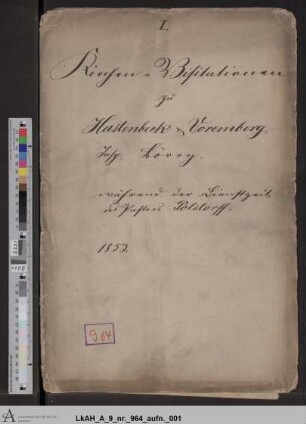 I.
Kirchen-Visitationen
zu
Hastenbeck & Voremberg
während der Dienstzeit
des Pastors
1853.
964
LkAH_A_9_nr._964_aufn._001